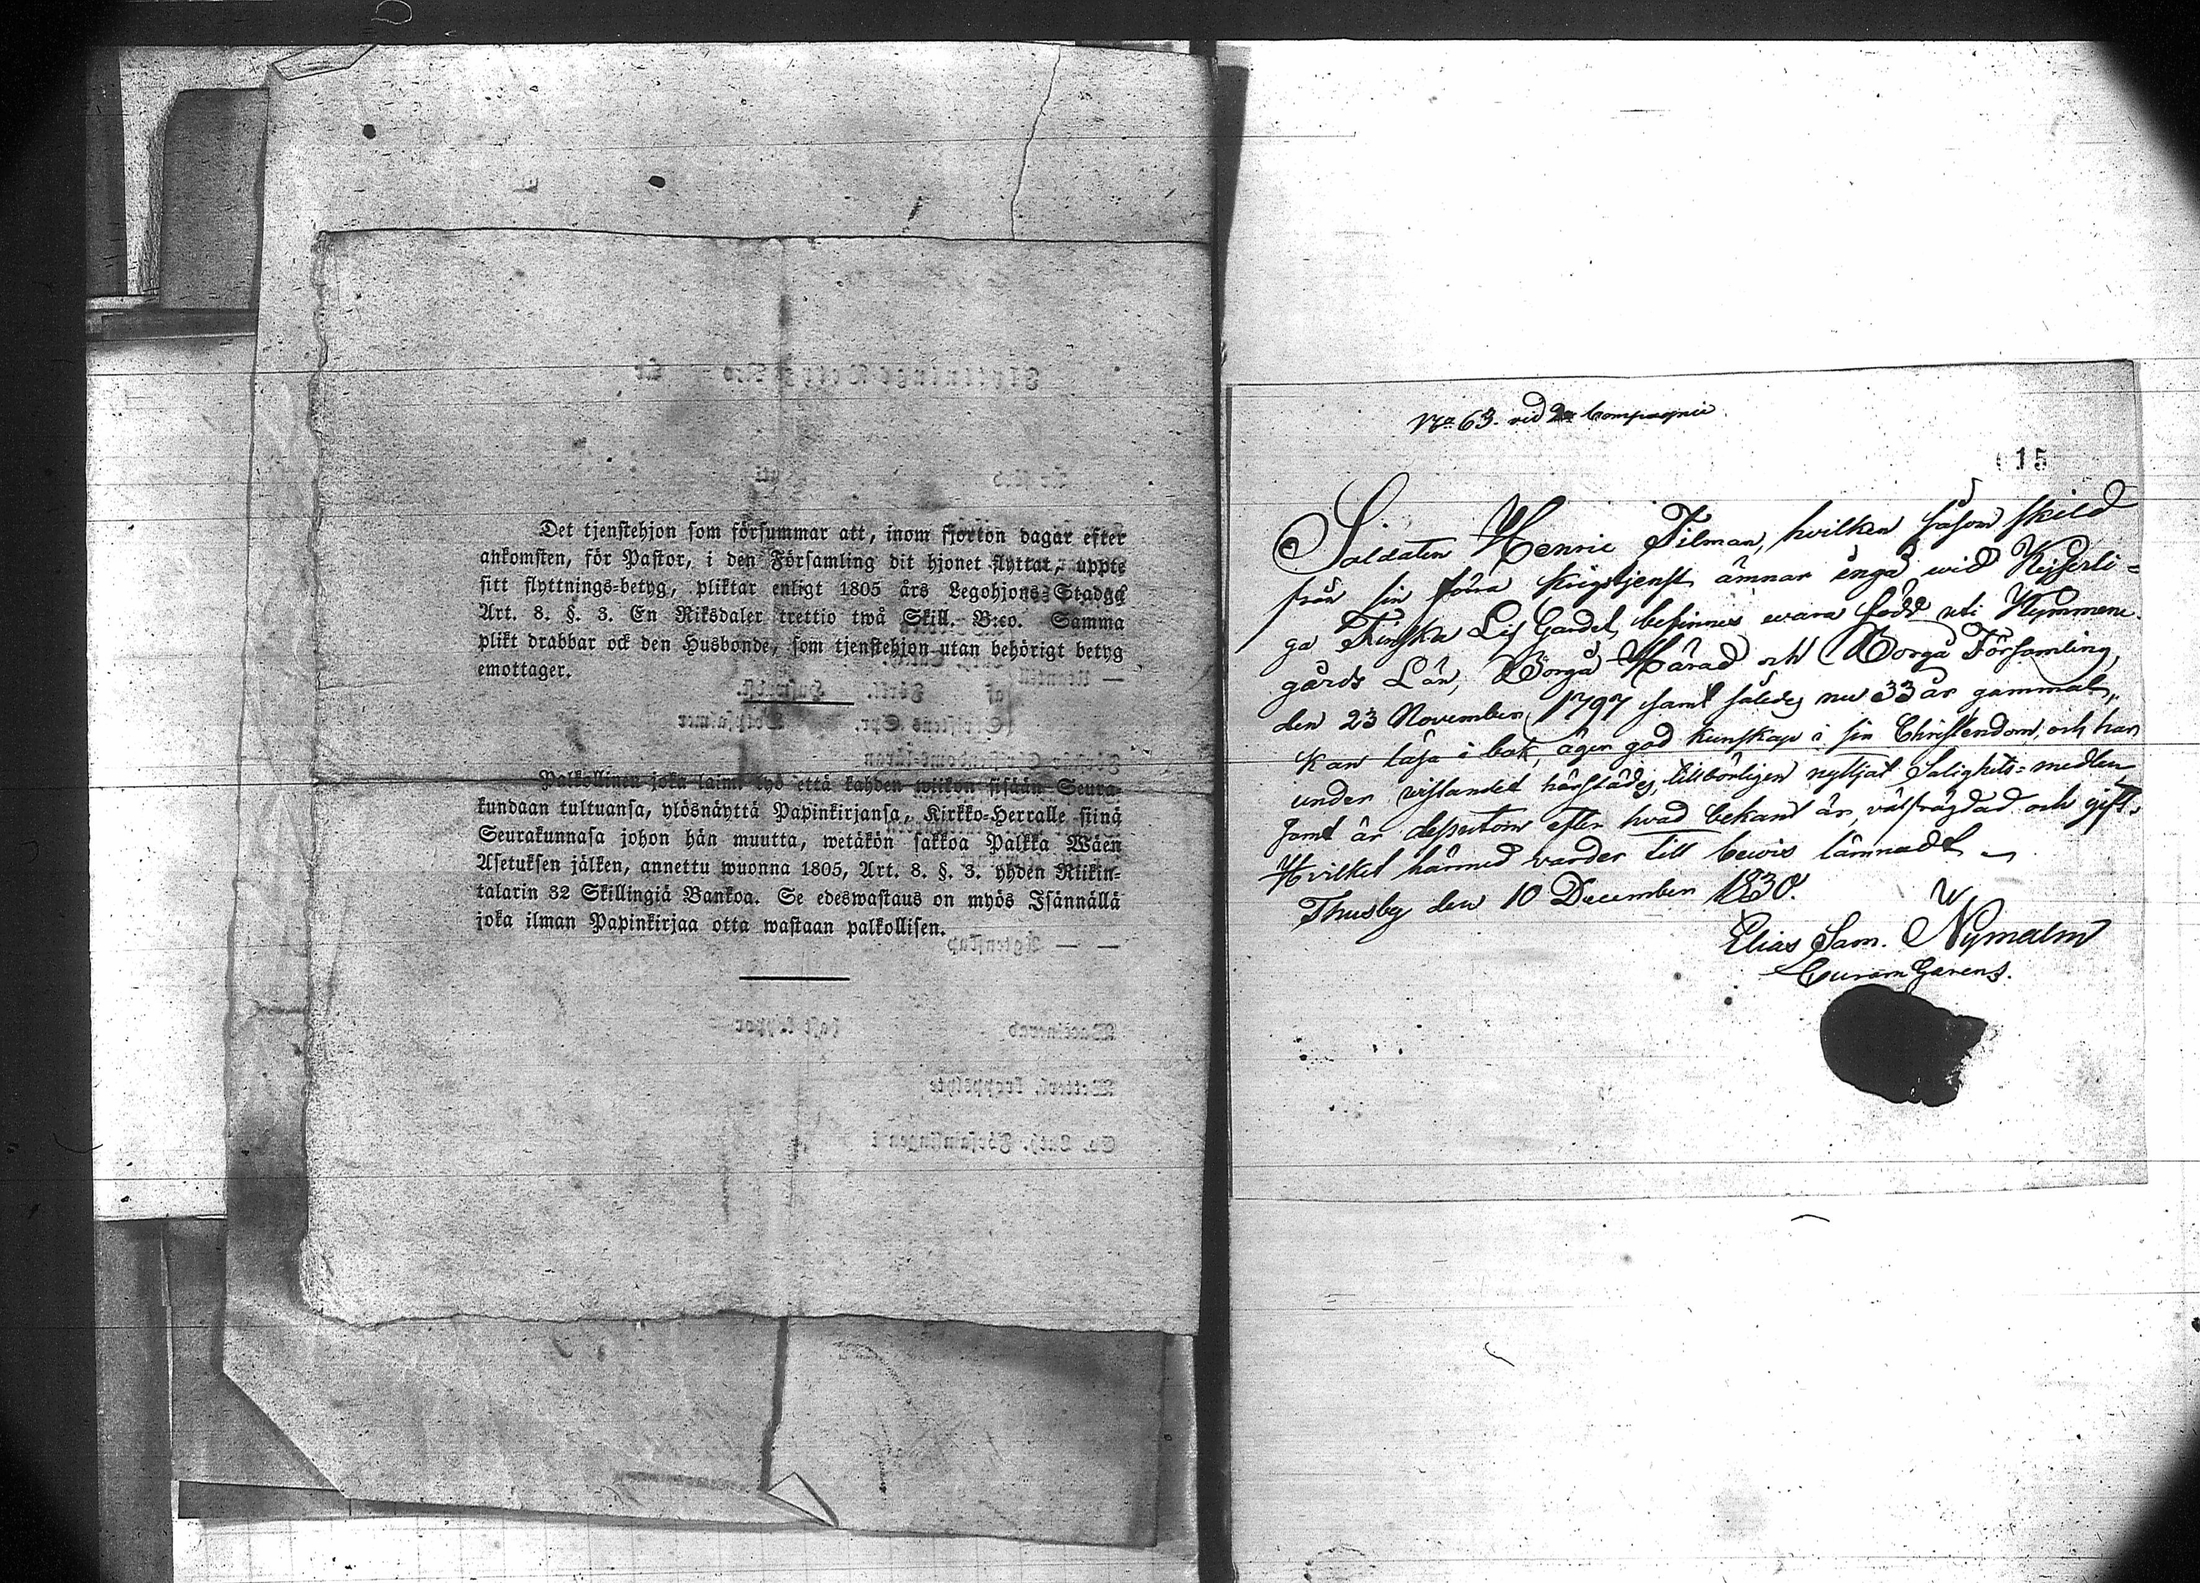 Det tjenstehjon som försummar att, inom fjorton dagar efter
ankomsten, för Pastor, i den Församling dit hjonet flyttat, uppte
sitt flyttnings-betyg, pliktar enligt 1805 års Legohjons-Stadga
Art. 8. §. 3. En Riksdaler trettio twå Skill. B:co. Samma
plikt drabbar ock den Husbonde, som tjenstehjon utan behörigt betyg
emottager.
Palkollinen joka laimi lyö että kahden wiikon sisään Seura-
kundaan tultuansa, ylösnäyttä Papinkirjansa, Kirkko-Herralle siinä
Seurakunnasa johon hän muutta, wetäkön sakkoa Palkka Wäen
Asetuksen jälken, annettu wuonna 1805, Art. 8. §. 3. yhden Riikin-
talarin 32 Skillingiä Bankoa. Se edeswastaus on myös Isännällä
joka ilman Papinkirjaa otta wastaan palkollisen.
No 63. vid 2a Compagnie
15
Soldaten Henric Tilman, hvilken såsom skild
från sin förra krigstjenst ämnar ingå wid Kejserli-
ga Finska Lif Gardet, befinnes wara född uti Kymmene-
gårds Län, Borgå Härad och Borgå Församling,
den 23 November 1797 samt således nu 33 år gammal,
kan läsa i bok, äger god kunskap i sin Christendom, och har
under vistandet härstädes, tillbörligen nyttjat Salighets-medlen
samt är dessutom efter hvad bekant är, välfrägdad och gift.
Hvilket härmed varder till bewis lämnadt
Thusby den 10 December 1830.
Elias Sam. Nymalm
Curam Gerens.